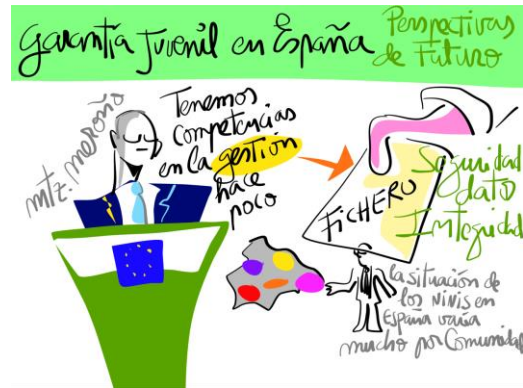 Garantía Juvenil en España
Perspectivas
de Futuro
mtz. meroño
Tenemos
competencias
en la gestión
hace
poco
FICHERO
Seguridad
dato
Integridad
la situación de
los NINIS en
España varía
mucho por Comunidad